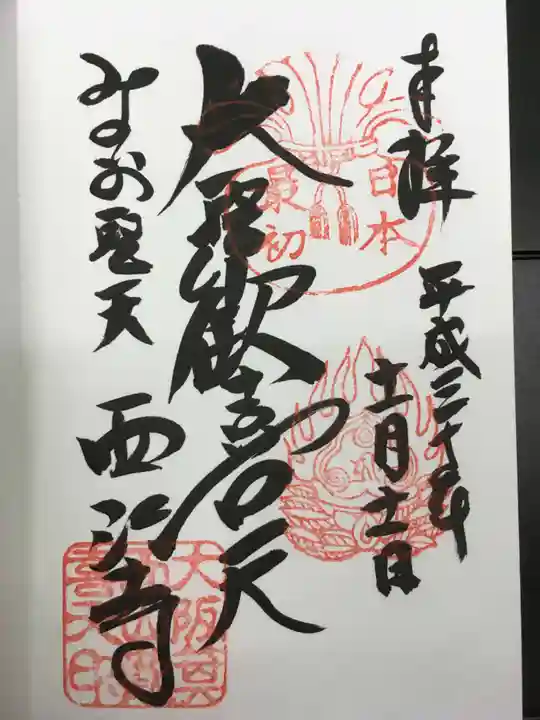 奉拝
平成三十年
十一月十一日
日本
最初
大聖歓喜天
みのお聖天
西江寺